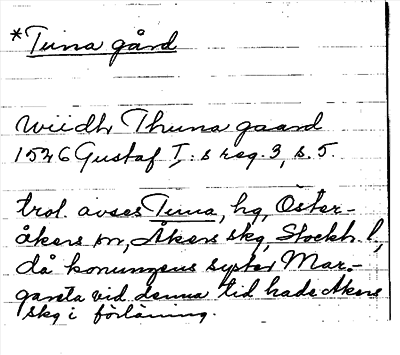 *Tuna gård
Wiidh Thuna gaard
1546 Gustaf I:s reg. 3, s. 5.
trol. avses Tuna, hg, Öster-
åkers sn, Åkers skg, Stockh. l,
då konungens syster Mar-
gareta vid denna tid hade Åkers
skg i förläning.